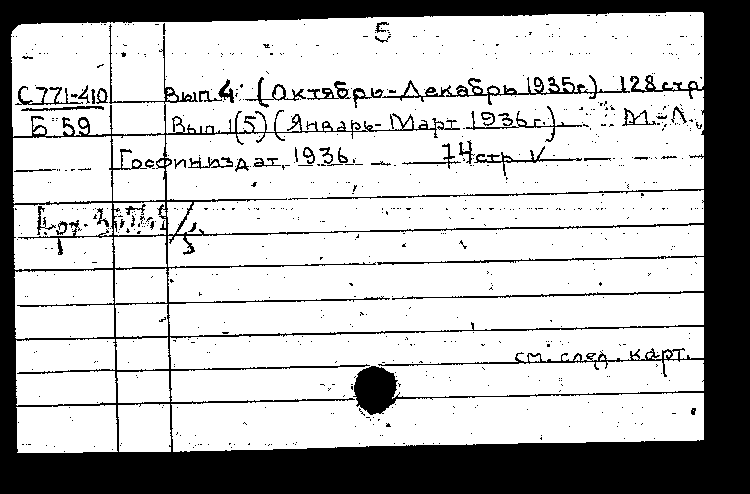 5
С771-410 Вып. 4 (Октябрь-Декабрь 1935г.). 128 стр
Б 59 Вып. 1(5) (Январь-Март 1936г.). М.-Л.,
Госфиниздат, 1936. 74 стр
см. след. карт.